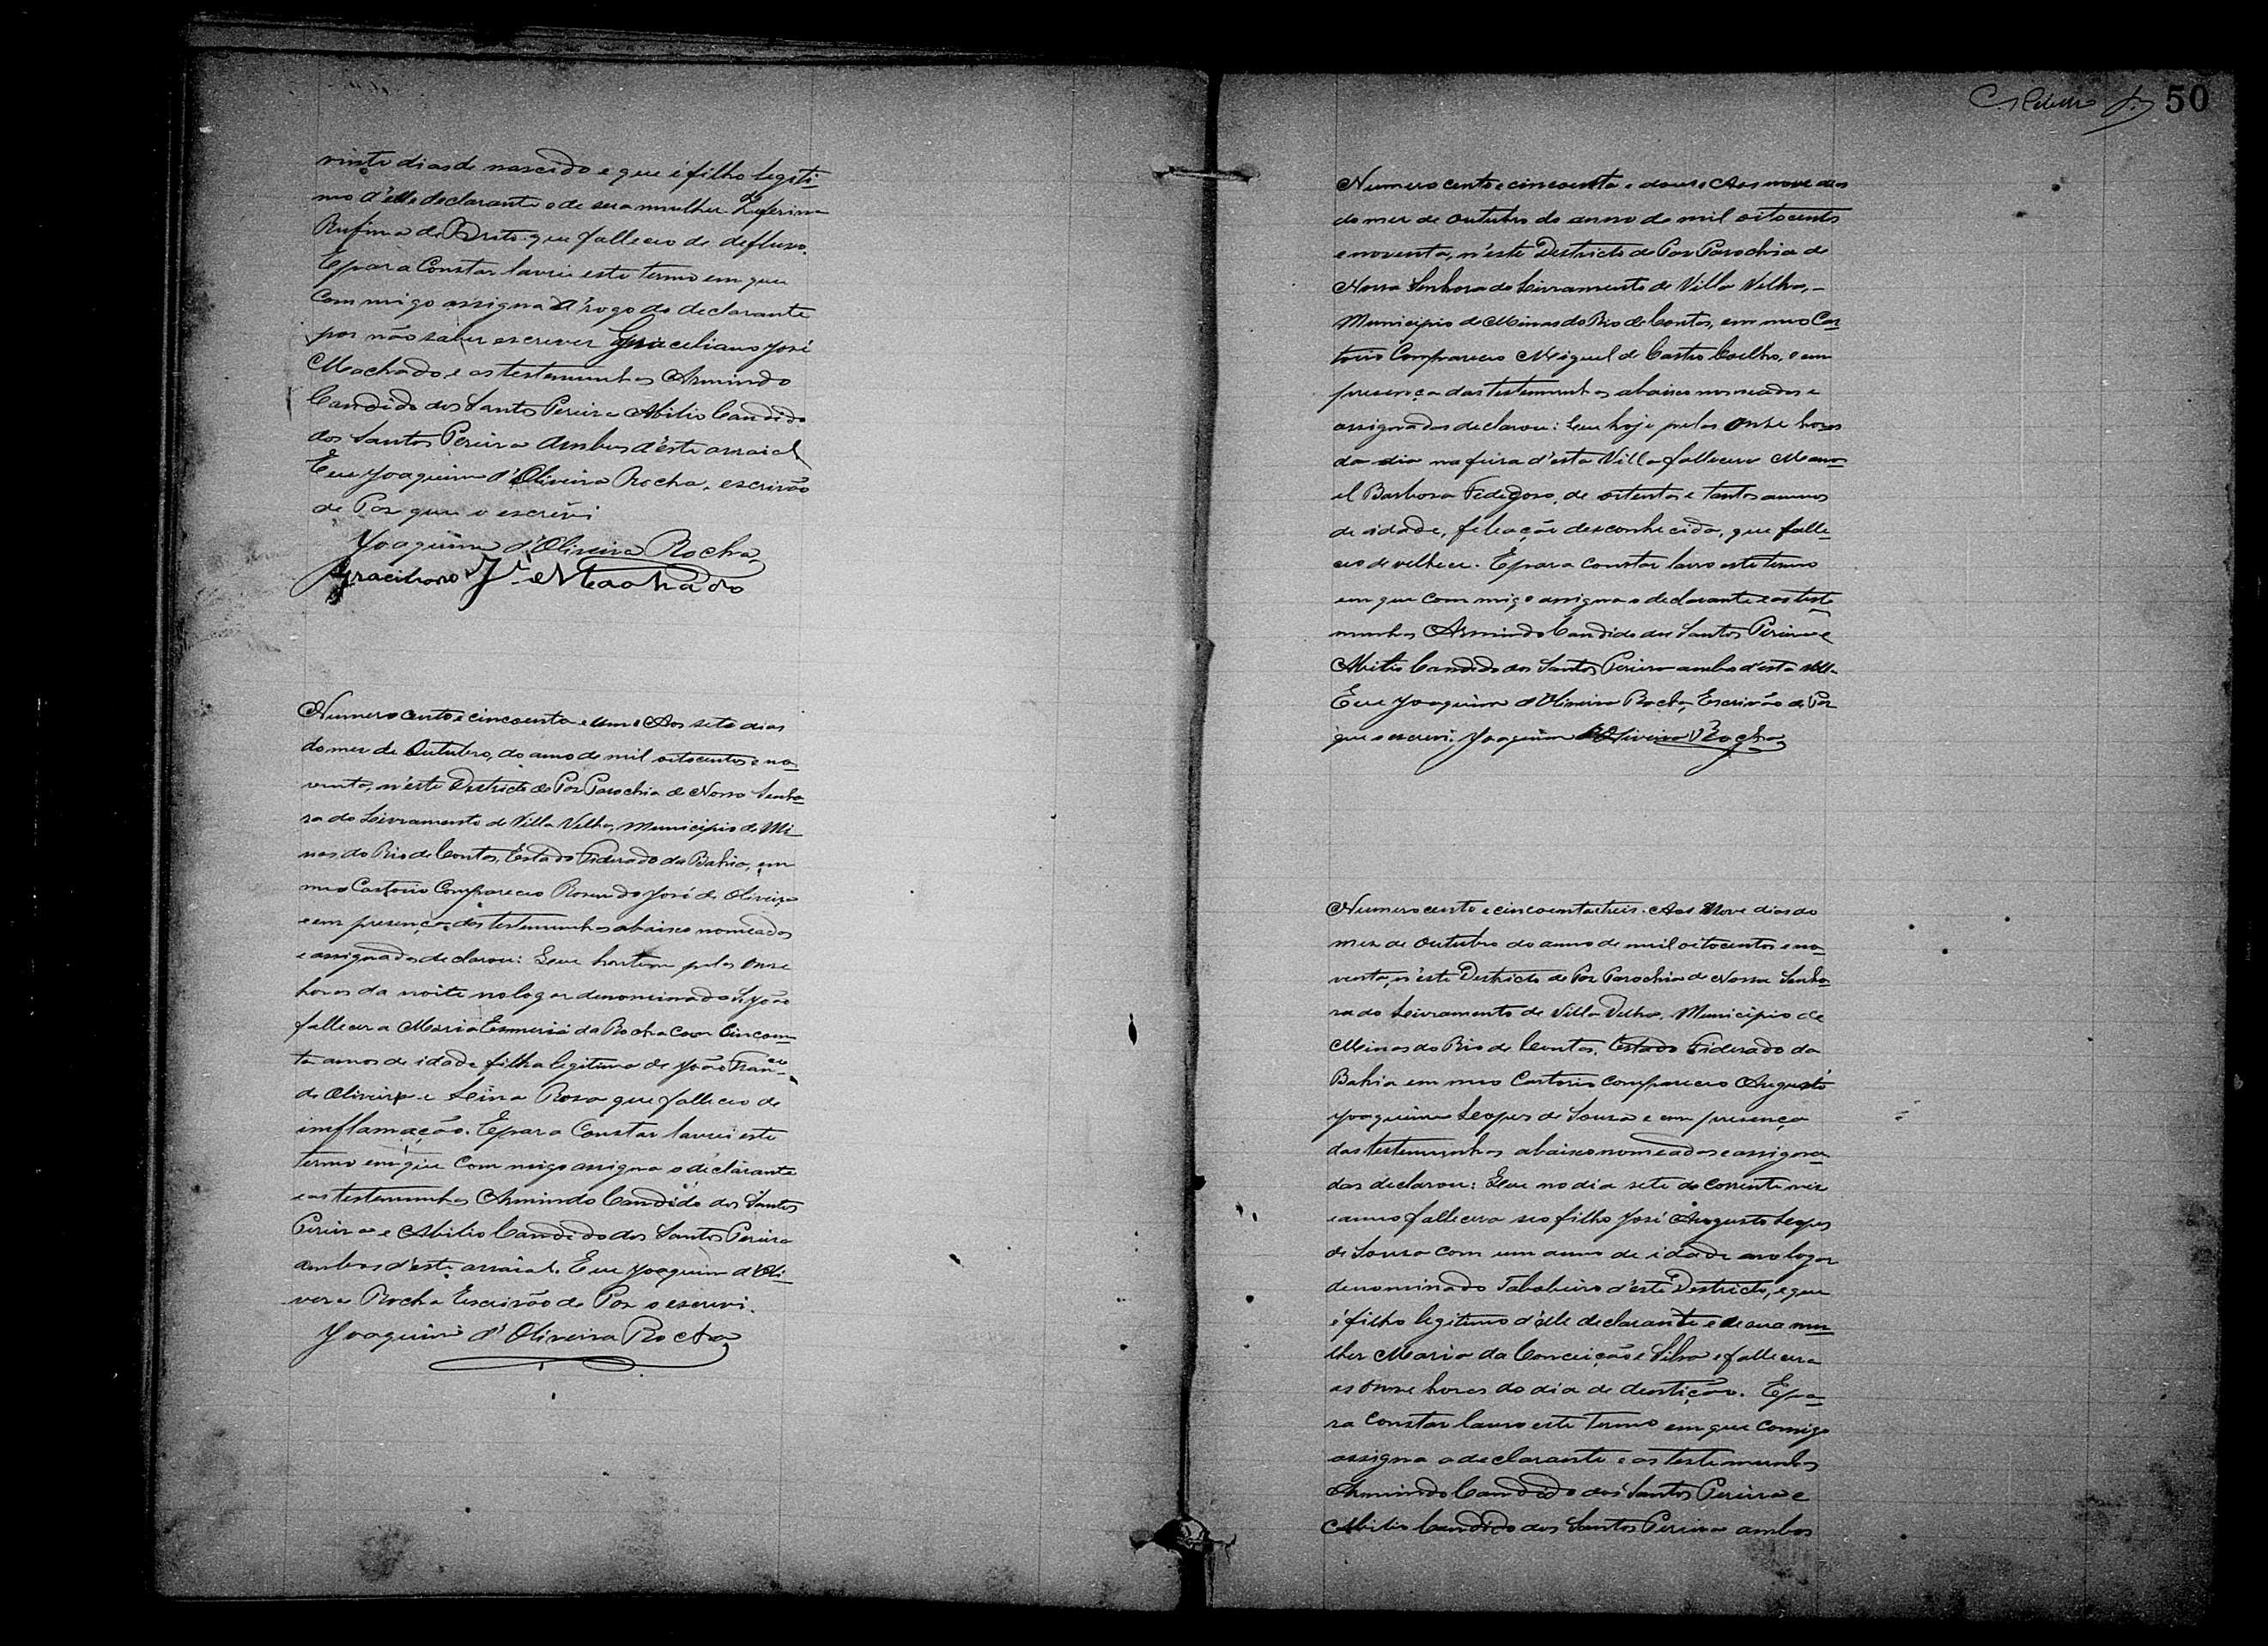 vinte dias de nascido e que é filho legiti-
mo d'elle declarante e de sua mulher Zeferina
Rufina de Brito que falleceo de defluxo.
E para constar lavrei este termo em que
commigo assigna á rogo do declarante
por não saber escrever Graciliano José
Machado e as testemunhas Armindo
Candido dos Santos Pereira e Abilio Candido
dos Santos Pereira ambos d'este arraial
Eu Joaquim d'Oliveira Rocha, escrivão
de Paz que o escrevi
Joaquim d'Oliveira Rocha
Graciliano Jé Machado
Numero cento e cincoenta e um. Aos sete dias
do mez de Outubro, do anno de mil oitocentos e no-
venta, n'este Districto de Paz Parochia de Nossa Senho-
ra do Livramento de Villa Velha, Municipio de Mi
nas do Rio de Contas, Estado Federado da Bahia, em
meo Cartorio Compareceo Rosendo José de Oliveira
e em presença das testemunhas abaixo nomeadas
e assignadas declarou: Que hontem pelas onze
horas da noite no logar denominado S. João
fallecera Maria Esmeria da Rocha com cincoen-
ta annos de idade filha legitima de João Franco
de Oliveira e Rosa que falleceo de
inflamação. E para Constar lavrei este
termo em que commigo assigna o declarante
e as testemunhas Armindo Candido dos Santos
Pereira e Abilio Candido dos Santos Pereira
ambos d'este arraial. Eu Joaquim d'Oli-
veira Rocha Escrivão de Paz o escrevi.
Joaquim d'Oliveira Rocha
50
Numero cento e cincoenta e dous. Aos nove dias
do mez de Outubro do anno de mil oitocentos
e noventa, n'este Districto de Paz Parochia de
Nossa Senhora do Livramento de Villa Velha,-
Municipio de Minas do Rio de Contas, em meo Car
torio Compareceo Miguel de Castro Coelho, e em
presença das testemunhas abaixo nomeadas e
assignadas declarou: Que hoje pelas onze horas
do dia na feira d'esta Villa fallecera Mano-
el Barbosa Fedegoso, de oitenta e tantos annos
de idade, filiação desconhecida, que falle-
ceo de velhice. E para constar lavro este termo
em que commigo assigna o declarante e as teste-
munhas Armindo Candido dos Santos Pereira e
Abilio Candido dos Santos Pereira ambos d'esta Villa.
Eu Joaquim d'Oliveira Rocha, Escrivão de Paz
que o escrevi. Joaquim d'Oliveira Rocha
Numero cento e cincoenta e treis. Aos Nove dias do
mez de Outubro do anno de mil oitocentos e no-
venta, n'este Districto de Paz Parochia de Nossa Senho-
ra do Livramento de Villa Velha, Municipio de
Minas do Rio de Contas, Estado Federado da
Bahia em meo Cartorio compareceo Augusto
Joaquim Lopes de Souza e em presença
das testemunhas abaixo nomeadas e assigna-
das declarou: Que no dia sete do corrente mez
e anno fallecera seo filho José Augusto Lopes
de Souza com um anno de idade no logar
denominado d'este Districto, e que
é filho legitimo d'elle declarante e de sua mu-
lher Maria da Conceição e Silva e fallecera
as onze horas do dia de dentição. E pa-
ra constar lavro este termo em que comigo
assigna o declarante e as testemunhas
Armindo Candido dos Santos Pereira e
Abilio Candido dos Santos Pereira ambos